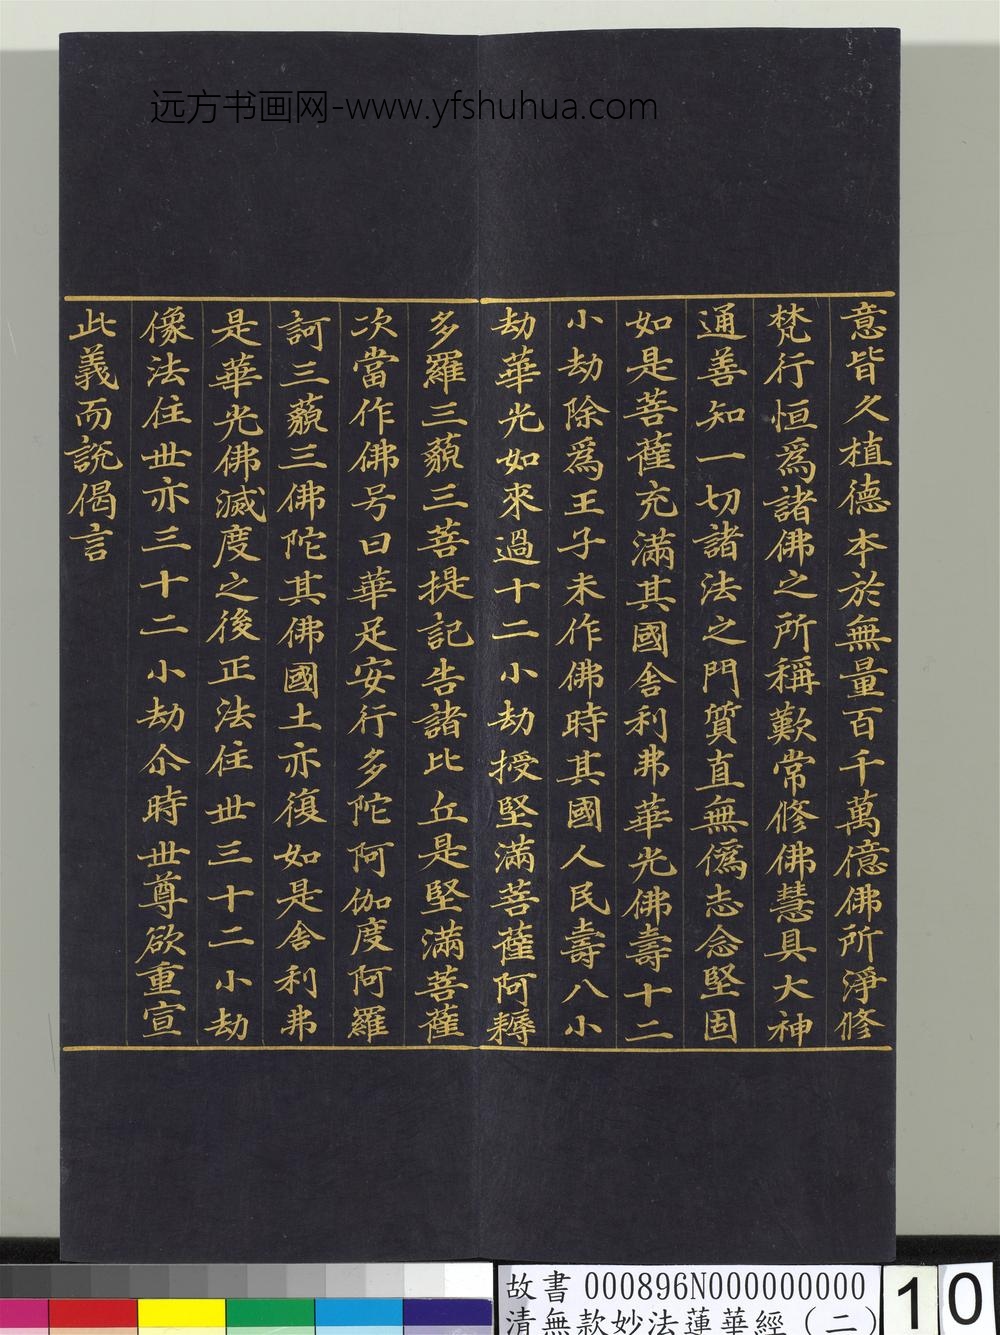 远方书画网-www.yfshuhua.com
意皆久植德本於無量百千萬億佛所淨修
梵行恒為諸佛之所稱歎常修佛慧具大神
通善知一切諸法之門質直無僞志念堅固
如是菩薩充滿其國舍利弗華光佛壽十二
小劫除為王子未作佛時其國人民壽八小
劫華光如來過十二小劫授堅滿菩薩阿耨
多羅三藐三菩提記告諸比丘是堅滿菩薩
次當作佛号曰華足安行多陀阿伽度阿羅
訶三藐三佛陀其佛國土亦復如是舍利弗
是華光佛滅度之後正法住世三十二小劫
像法住世亦三十二小劫尒時世尊欲重宣
此義而說偈言
故書 000896N000000000
清無款妙法蓮華經（二）
10